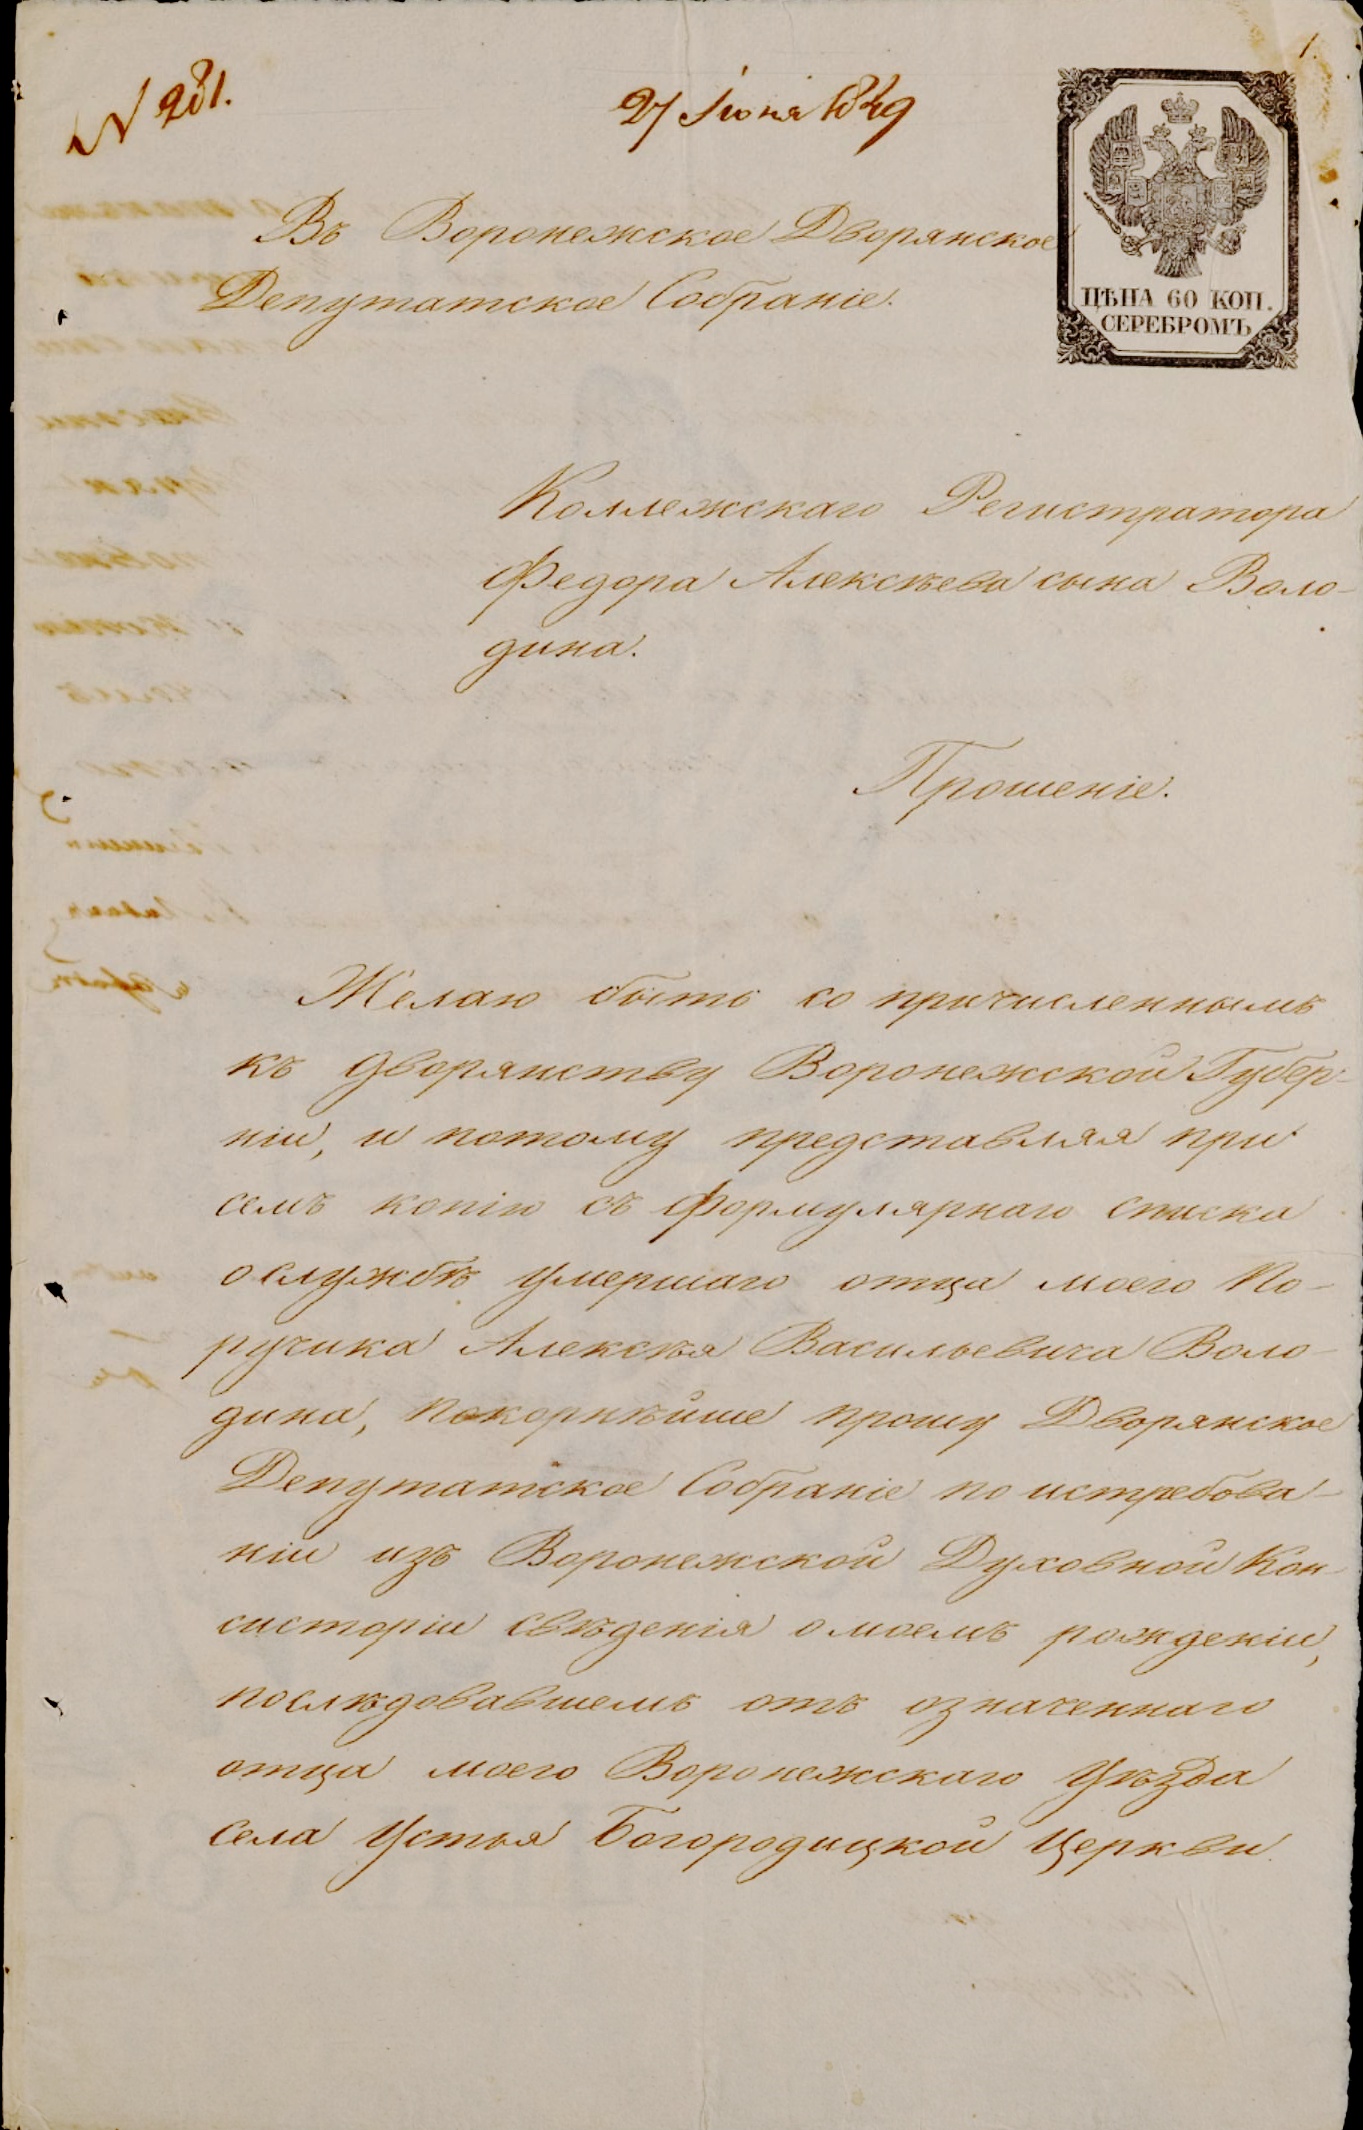 1.
N 281.
27 Іюня 1849
Въ Воронежское Дворянское
Депутатское Собраніе.
ЦѢНА 60 КОП.
СЕРЕБРОМЪ
Коллежскаго Регистратора
Федора Алексѣева сына Воло-
дина.
Прошеніе.
Желаю быть со причисленнымъ
къ дворянству Воронежской Губер-
ніи, и потому представляя при
семъ копію съ формулярнаго списка
о службѣ умершаго отца моего По-
ручика Алексѣя Васильевича Воло-
дина, покорнѣйше прошу Дворянское
Депутатское Собраніе по истребова-
ніи изъ Воронежской Духовной Кон-
систоріи свѣденія о моемъ рожденіи,
послѣдовавшемъ отъ означеннаго
отца моего Воронежскаго Уѣзда
села Устья Богородицкой Церкви